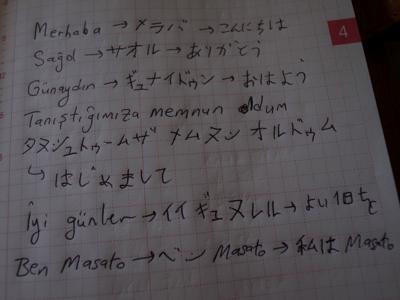 4
Merhaba → メラバ → こんにちは
Sağol → サオル → ありがとう
Günaydın → ギュナイドゥン → おはよう
Tanıştığımıza memnun oldum
タヌシュトゥームザ メムヌン オルドゥム
↳ はじめまして
İyi günler → イイ ギュヌレル → よい1日を
Ben Masato → ベン Masato → 私は Masato